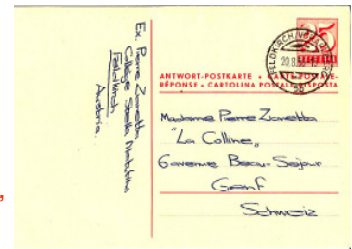 Ex. Pierre Zanetta
Collège Stella Matutina
Feldkirch
Austria.
25
FELDKIRCH
20.8.
ANTWORT-POSTKARTE • CARTE POSTALE-
RÉPONSE • CARTOLINA POSTALE RISPOSTA
Madame Pierre Zanetta
"La Colline,"
6 avenue Beau-Séjour
Genf
Schweiz